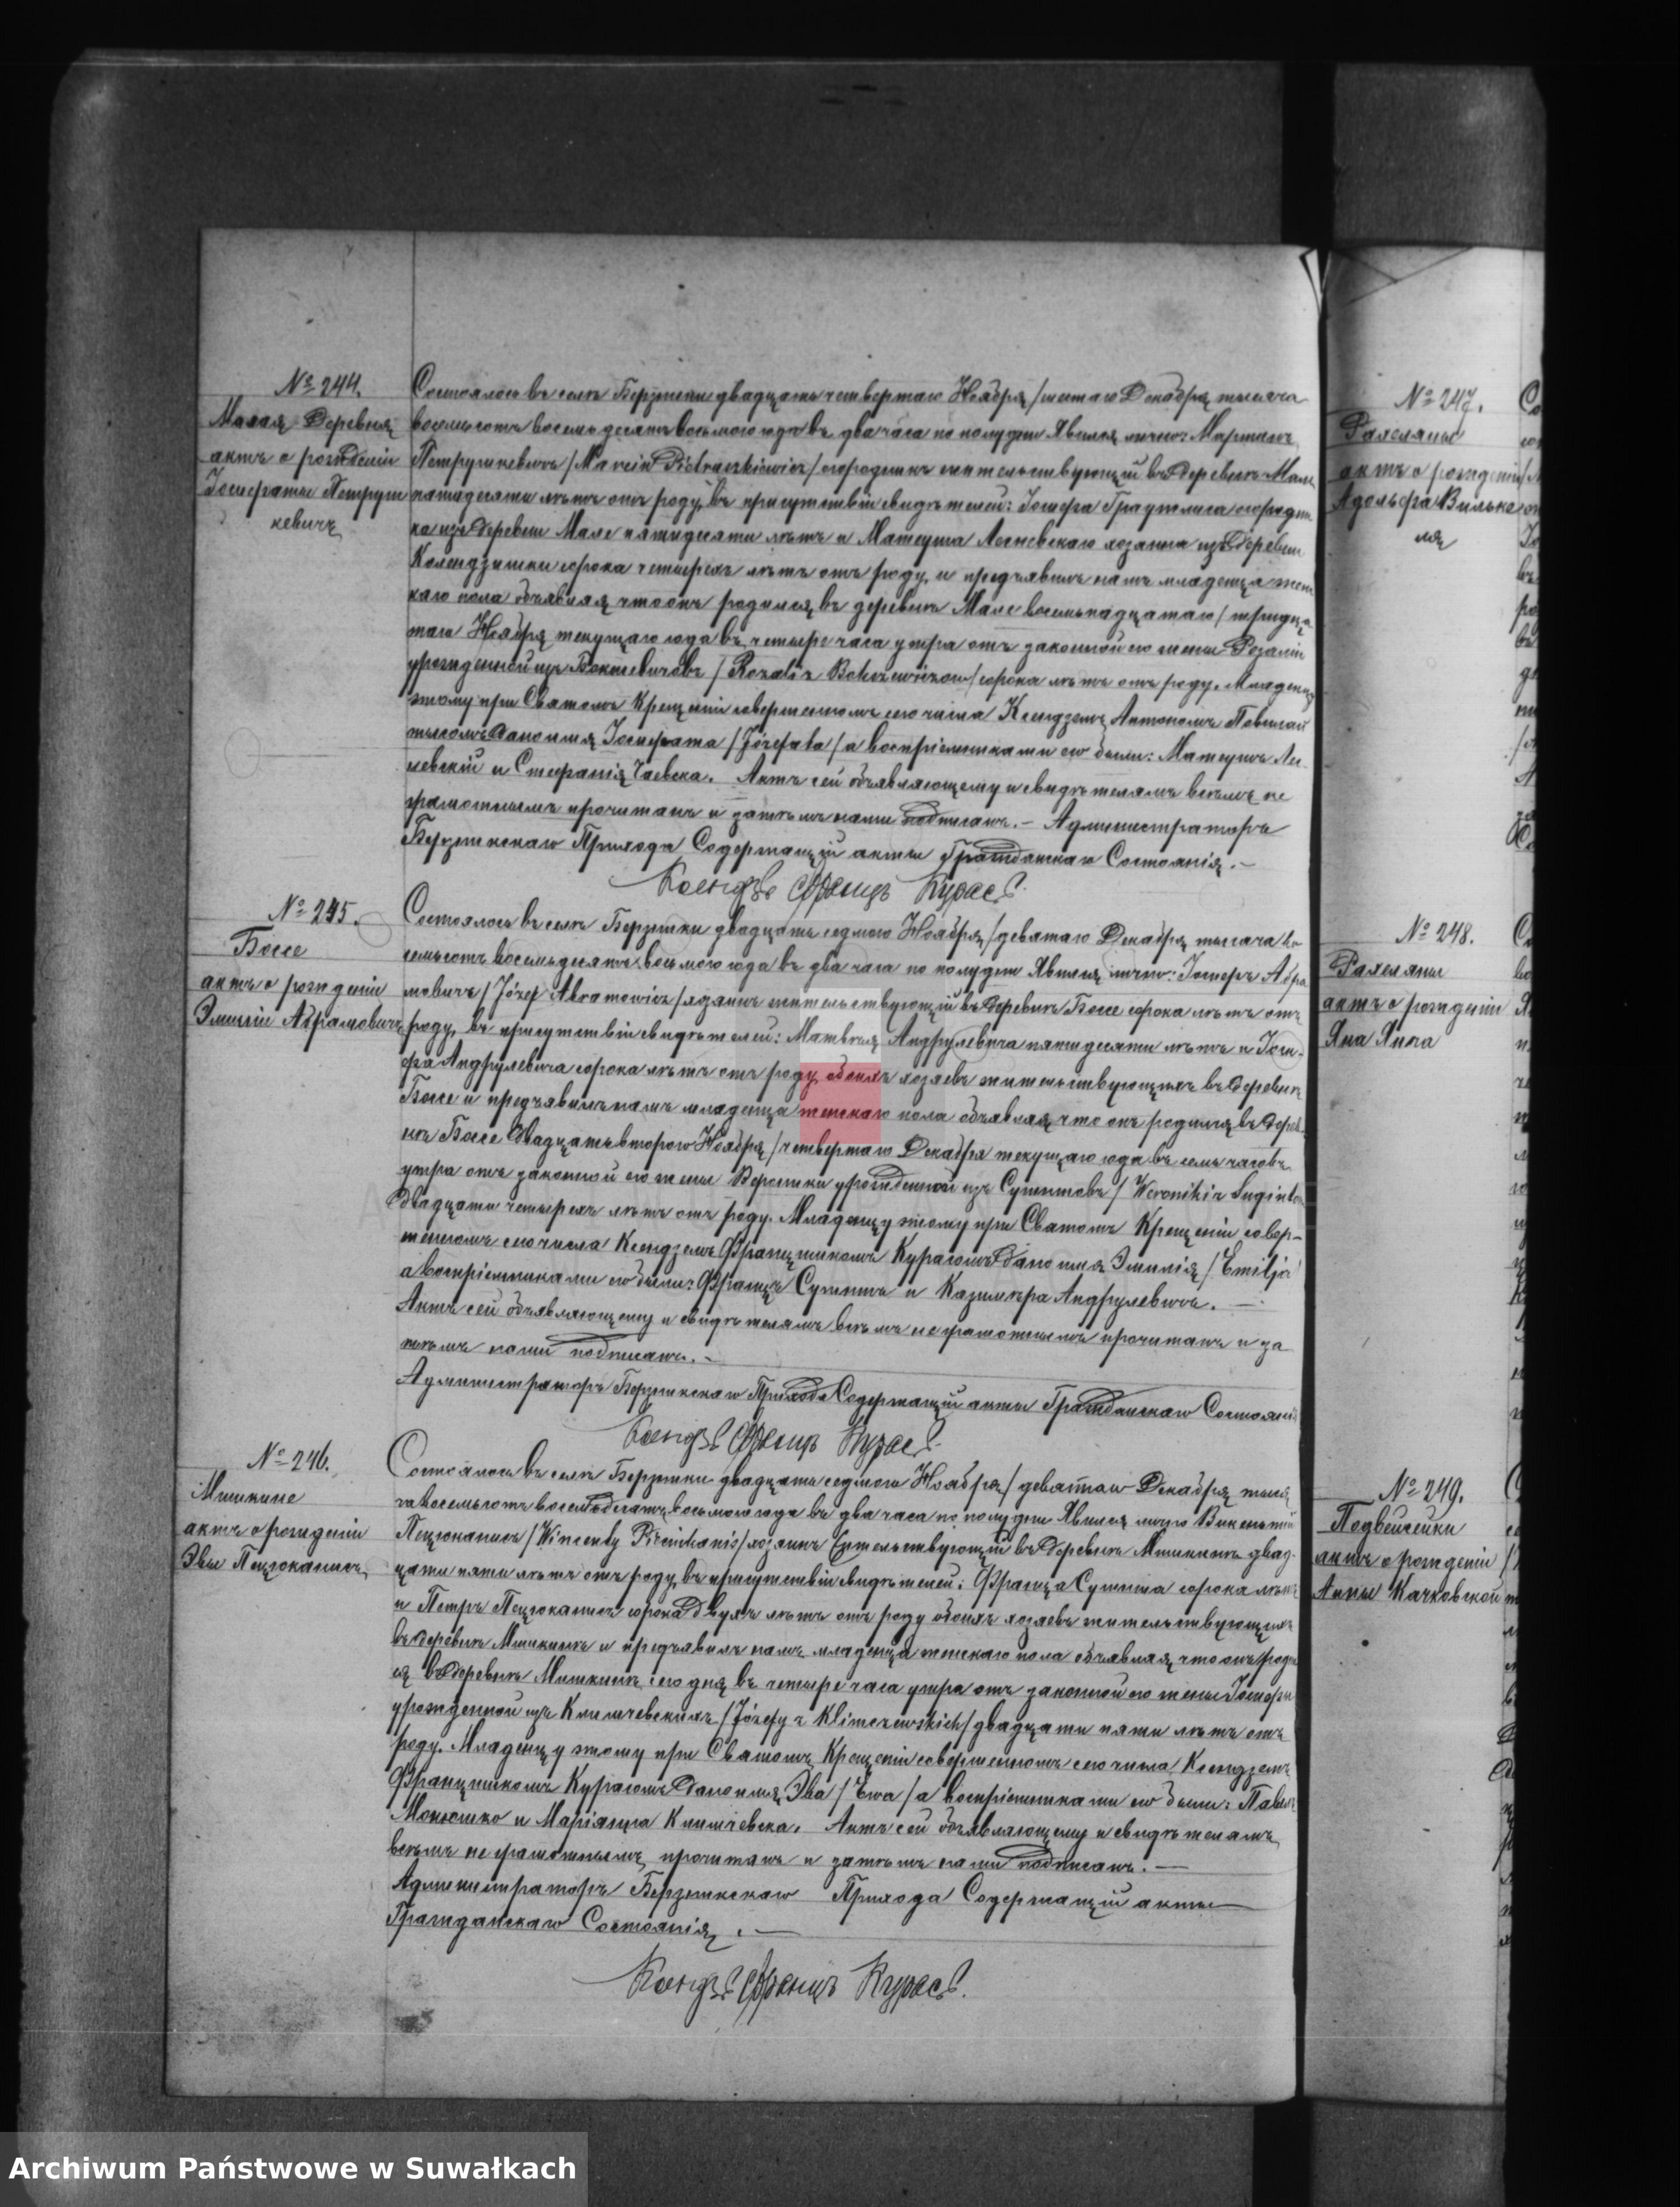 № 244.
Малая Деревня
актъ о рожденіи
Іосифаты Петруш
кевичъ
Состоялось въ селѣ Бержники двадцать четвертаго Ноября /шестаго Декабря тысяча
восемьсотъ восемьдесятъ восьмого года въ два часа по полудни Явился лично: Мартинъ
Петрушкевичъ /Marcin Pietruszkiewicz/ огородникъ жительствующій въ деревнѣ Мале
пятидесяти лѣтъ отъ роду, въ присутствіи свидѣтелей: Іосифа огородни
ка изъ деревни Мале пятидесяти лѣтъ и Матеуша хозяина изъ деревни
Колендзишки сорока четырехъ лѣтъ отъ роду, и предъявилъ намъ младенца жен
каго пола объявляя что онъ родился въ деревнѣ Мале восемнадцатаго /тридца
таго Ноября текущаго года въ четыре часа утра отъ законной его жены Розаліи
урожденной изъ /Rozalii z сорока лѣтъ отъ роду. Младенцу
этому при Святомъ Крещеніи совершенномъ сего числа Ксендзомъ Антономъ
дано имя Іосифата /Józefata/ а воспріемниками его были: Матеушъ
и Стефанія Чаевска. Актъ сей объявляющему и свидѣтелямъ всѣмъ не
грамотнымъ прочитанъ и затѣмъ нами подписанъ. – Администраторъ
Бержникскаго Прихода Содержащій акты Гражданскаго Состоянія. –
Ксендзъ Францъ Курасъ.
№ 245.
Боссе
актъ о рожденіи
Эмиліи Абрамовичъ
Состоялось въ селѣ Бержники двадцать седмого Ноября /девятаго Декабря тысяча во
семьсотъ восемьдесятъ восьмого года въ два часа по полудни Явился лично: Іосифъ Абра
мовичъ /Józef Abramowicz/ хозяинъ жительствующій въ деревнѣ Боссе сорока лѣтъ отъ
роду, въ присутствіи свидѣтелей: Матвѣя Андрулевича пятидесяти лѣтъ и Іоси-
фа Андрулевича сорока лѣтъ отъ роду, обоихъ хозяевъ жительствующихъ въ деревнѣ
Боссе и предъявилъ намъ младенца женскаго пола объявляя что онъ родился въ дерев
нѣ Боссе двадцать второго Ноября /четвертаго Декабря текущаго года въ семь часовъ
утра отъ законной его жены Вероники урожденной изъ /Weroniki z
двадцати четырехъ лѣтъ отъ роду. Младенцу этому при Святомъ Крещеніи совер-
шенномъ сего числа Ксендзомъ Францишкомъ Курасомъ дано имя Эмилія /Emilja/
а воспріемниками его были: Францъ и Казимѣра Андрулевичъ. –
Актъ сей объявляющему и свидѣтелямъ всѣмъ неграмотнымъ прочитанъ и за
тѣмъ нами подписанъ. –
Администраторъ Бержникскаго Прихода Содержащій акты Гражданскаго Состоянія
Ксендзъ Францъ Курасъ.
№ 246.
Мишкине
актъ о рожденіи
Эвы Пецюканисъ
Состоялось въ селѣ Бержники двадцать седмого Ноября /девятаго Декабря тыся
ча восемьсотъ восемьдесятъ восьмого года въ два часа по полудни Явился лично Викентій
Пецюканисъ /Wincenty хозяинъ жительствующій въ деревнѣ Мишкинѣ двад-
цати пяти лѣтъ отъ роду, въ присутствіи свидѣтелей: Франца сорока лѣтъ
и Петра Пецюканисъ сорока двухъ лѣтъ отъ роду обоихъ хозяевъ жительствующихъ
въ деревнѣ Мишкинѣ и предъявилъ намъ младенца женскаго пола объявляя что онъ роди
ся въ деревнѣ Мишкинѣ сего дня въ четыре часа утра отъ законной его жены Іосифы
урожденной изъ Климчевскихъ /Józefy z Klimczewskich/ двадцати пяти лѣтъ отъ
роду. Младенцу этому при Святомъ Крещеніи совершенномъ сего числа Ксендзомъ
Францишкомъ Курасомъ дано имя Эва /Ewa/ а воспріемниками его были: Павелъ
Монюшко и Маріянна Климчевска. Актъ сей объявляющему и свидѣтелямъ
всѣмъ неграмотнымъ прочитанъ и затѣмъ нами подписанъ. –
Администраторъ Бержникскаго Прихода Содержащій акты
Гражданскаго Состоянія. –
Ксендзъ Францъ Курасъ.
№ 247.
актъ о рожденіи
Адольфа
№ 248.
актъ о рожденіи
Яна
№ 249.
Подвейсейки
актъ о рожденіи
Анны Качковской
Archiwum Państwowe w Suwałkach